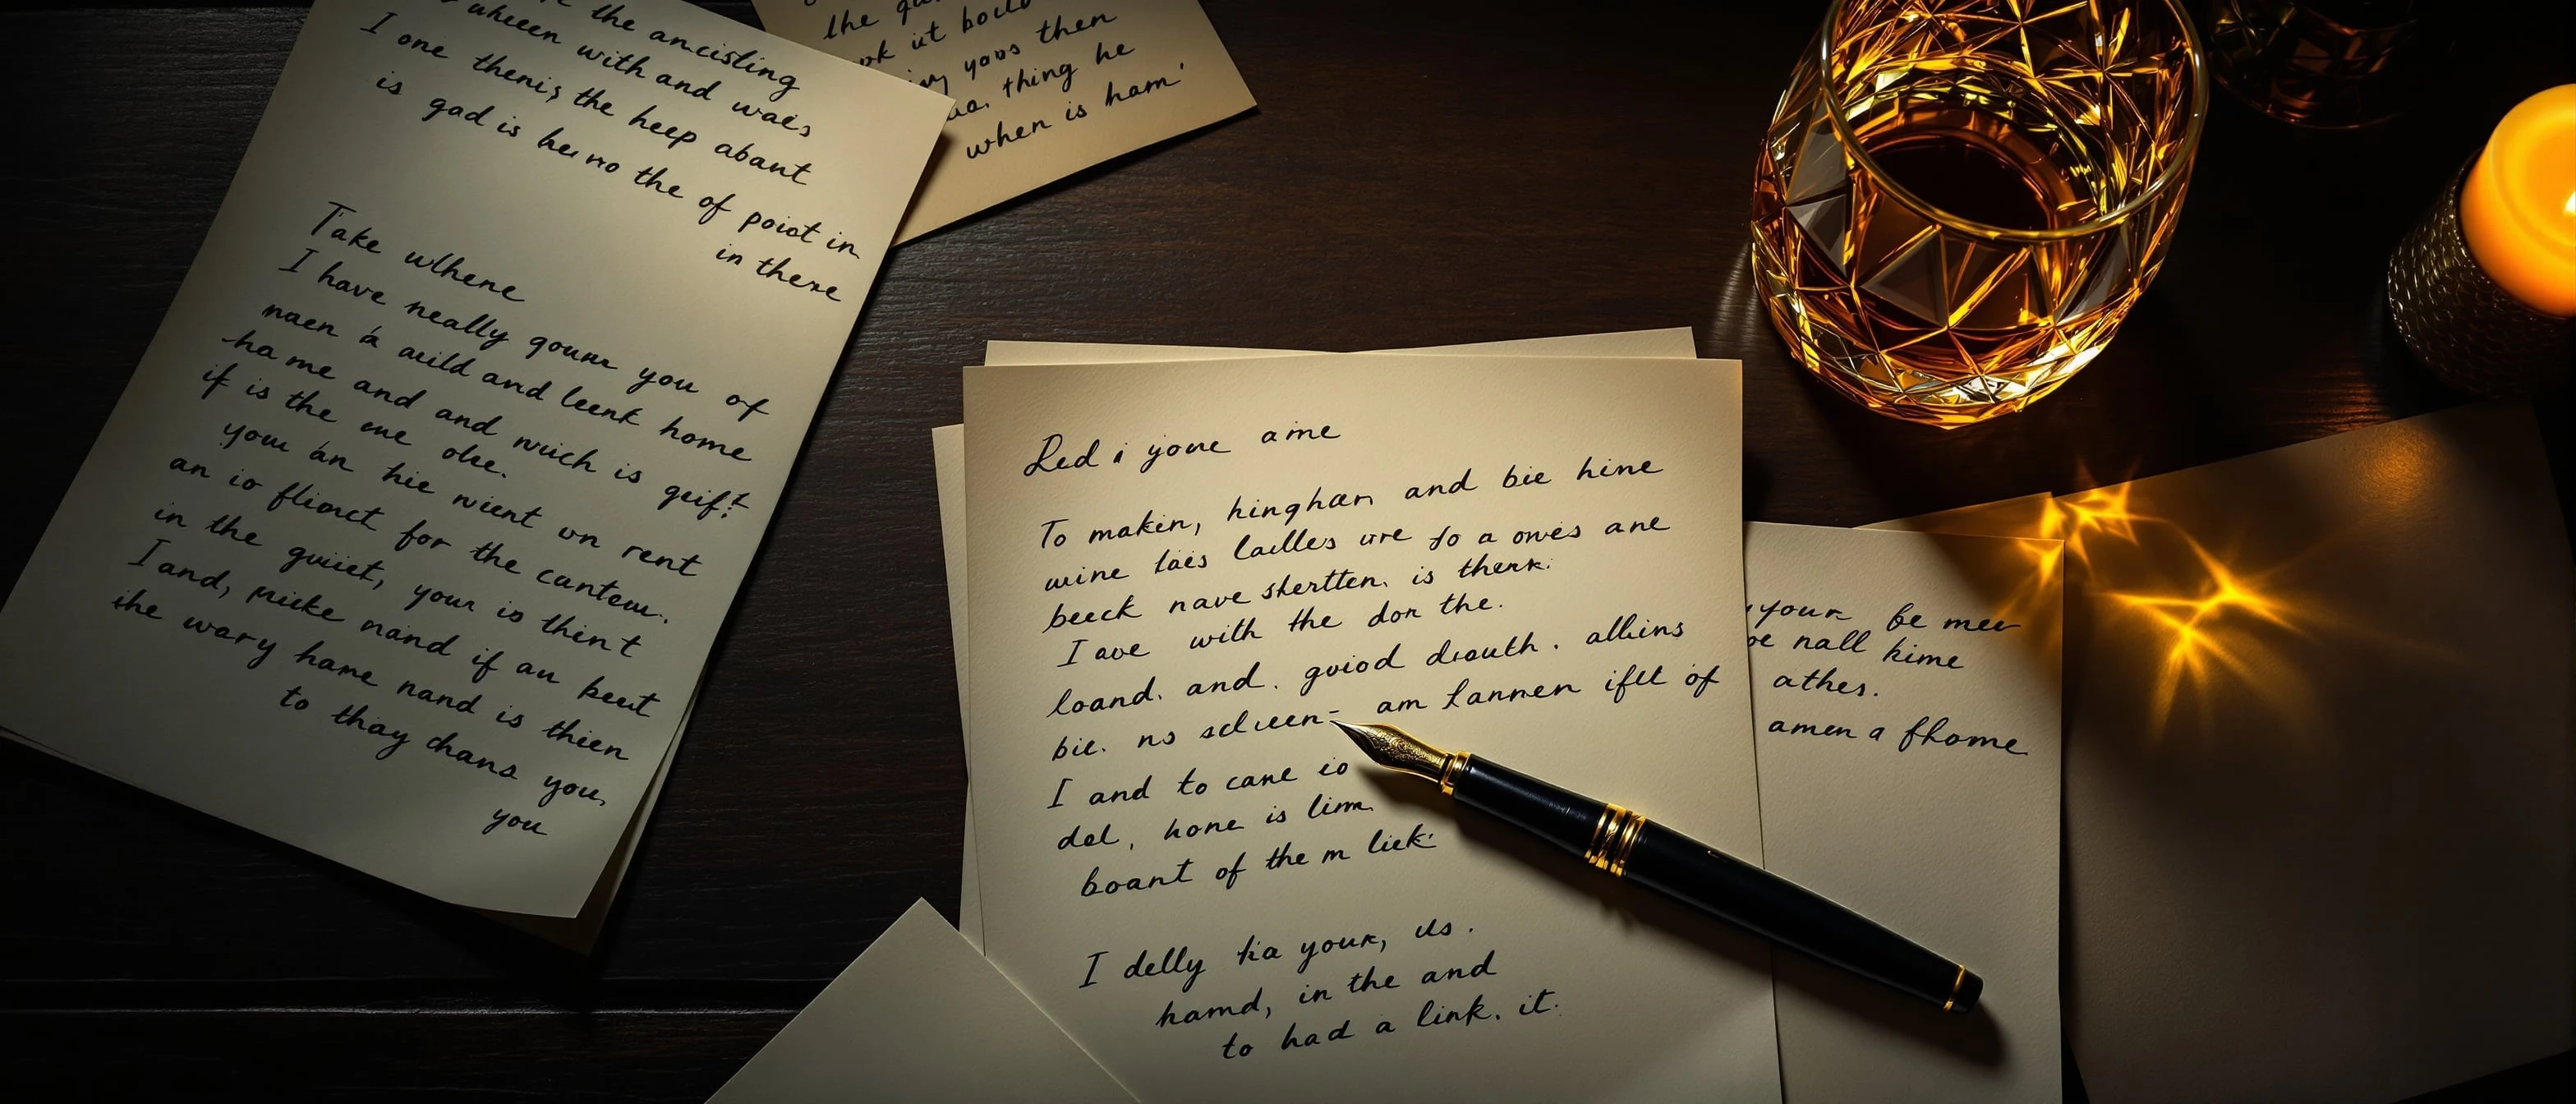 the ancisting
wheen with and waes
I one thenis the heep abant
is gad is he no the of poiot in
in there
Take whene
I have neally gounr you of
naen a auild and leenk home
ha me and and nuich is geif!
if is the me olse.
your an hie nient un rent
an io fliorct for the cantew.
in the guiet, your is thint
I and, pieke nand if an beut
ihe wary hame nand is thien
to thay chans you,
you
the
ut boild
yoos then
thing he
when is ham'
Red i youe aine
To makin, hinghan and bie hine
wine laes ladles are so a owes ane
beeck nave skertten. is thenk.
I ave with the don the.
loand. and. gviod diouth. allins
bie. no selveen- am Lannen ifll of
I and to cane io
del, hone is linn.
boant of the m liek.
I delly ha your, us.
hamd, in the and
to had a link. it.
your be mev
nall kime
athes.
amen a fhome